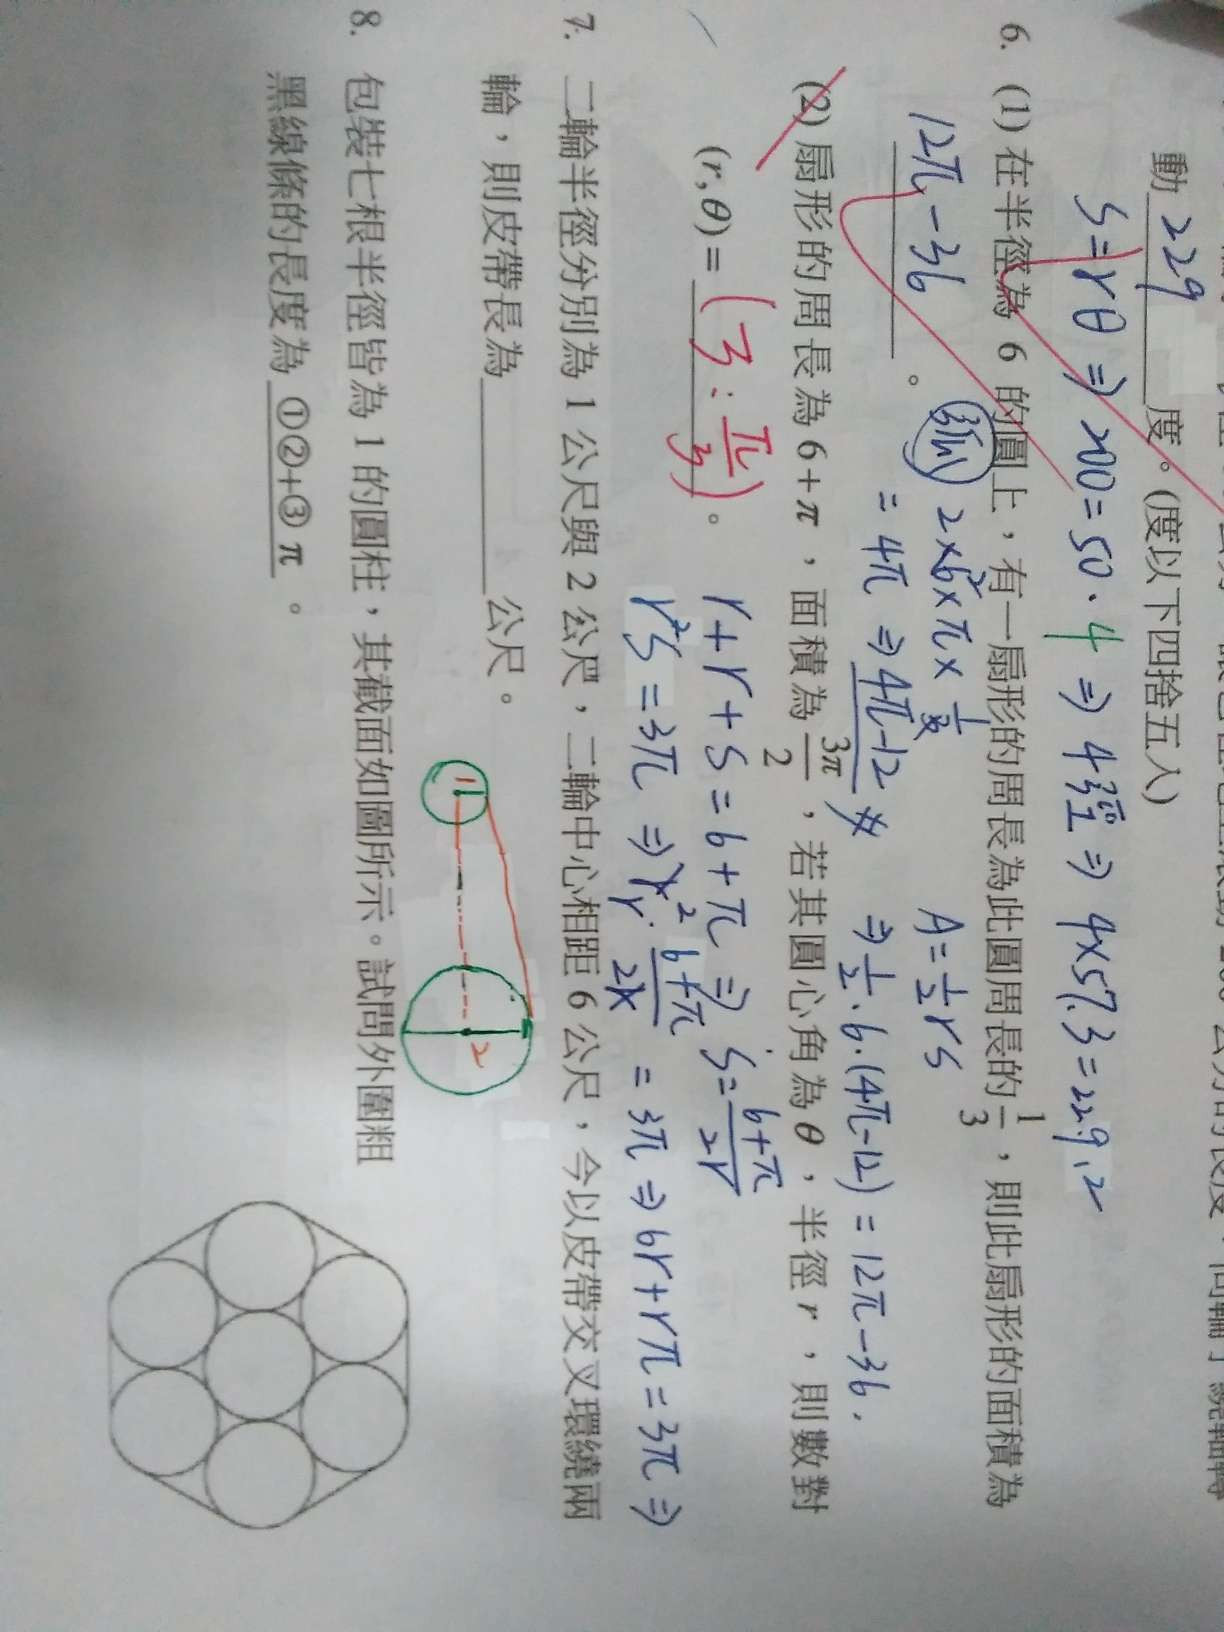 動 229 度。(度以下四捨五入)
S=rθ ⇒ 200=50·4 ⇒ 4弳 ⇒ 4×57.3=229.2
6. (1) 在半徑為 6 的圓上，有一扇形的周長為此圓周長的 1/3，則此扇形的面積為
12π-36 。
弧 2×6²×π×1/3
=4π ⇒ 4π-12
A=1/2 rs
⇒ 1/2·6·(4π-12)=12π-36.
(2) 扇形的周長為 6+π，面積為 3π/2，若其圓心角為 θ，半徑 r，則數對
(r,θ)= (3, π/3) 。
r+r+s=6+π ⇒ s=6+π/2r
r²s=3π ⇒ r²·6+π/2r=3π ⇒ 6r+rπ=3π ⇒
7. 二輪半徑分別為 1 公尺與 2 公尺，二輪中心相距 6 公尺，今以皮帶交叉環繞兩
輪，則皮帶長為 公尺。
1
2
8. 包裝七根半徑皆為 1 的圓柱，其截面如圖所示。試問外圍粗
黑線條的長度為 ①②+③π 。